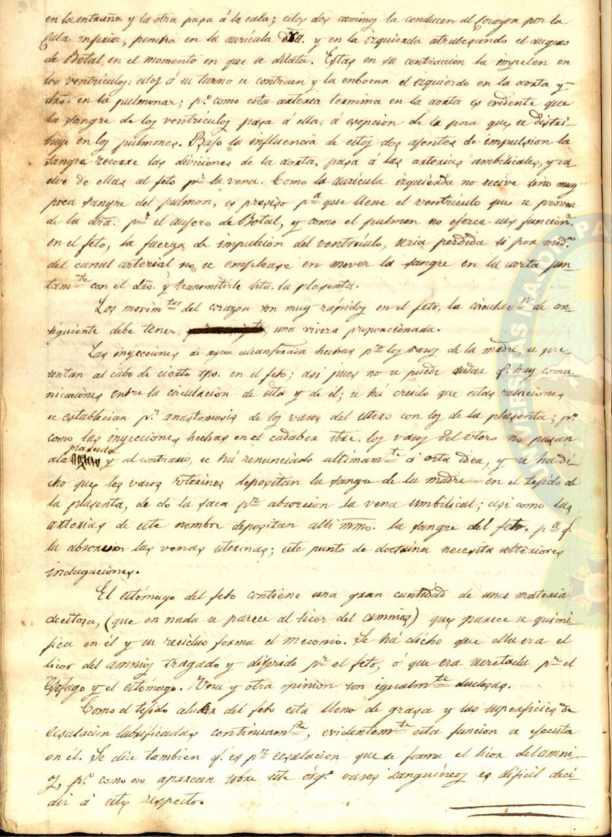 en la entraña y la otra pasa á la caba; estos dos caminos la conducen al Corazon por la
inferior, penetra en la auricula dra. y en la izquierda atrabesando el augero
de Botal, en el momento en que se dilata. Estas en su contraccion la impelen en
los ventriculos: estos á su turno se contraen y la embocan el izquierdo en la aorta y
dro. en la pulmonar; pº. como esta arteria termina en la aorta es evidente que
la sangre de los ventriculos pasa á ella, á esepcion de la poca que se distri-
buye en los pulmones. Bajo la influencia de estos dos agentes de impulsion la
sangre recorre las divisiones de la aorta, pasa á las arterias umbilicales, y vu-
elve de ellas al feto pr. la vena. Como la auricula izquierda no recive sino muy
poca sangre del pulmon, es presiso que llene el ventriculo que se
de la dra. pr. el augero de Botal, y como el pulmon no eferce sus funcions.
en el feto, la fuerza de impulsion del ventriculo, seria perdida si por medº.
del canal arterial no se emplease en mover la sangre en la aorta jun-
tamte. con el dro. y transmitirle hta. la plasenta.
Los movimtos. del corazon son muy rápidos en el feto, la circulon. de con-
siguiente debe tener, una viveza proporcionada.
Las inyecciones de agua alcanforada hechas en los vasos de la madre, se pre-
sentan al cabo de cierto tpo. en el feto; asi pues no se puede dudar q. hay comu-
nicaciones entre la circulacion de esta y de él; se há creido que estas relaciones
se establecian pr. anastomosis de los vasos del utero con los de la plasenta; pº.
como las inyecciones hechas en el cadaber sbre. los vasos del utero no pasan
a la plasenta y al contrario, se há renunciado ultimamte. á esta idea, y se ha di-
cho que los vasos uterinos depositan la sangre de la madre en el tejido de
la plasenta, de do la saca pr. absorcion la vena umbilical; asi como las
arterias de este nombre depositan alli mmo. la sangre del feto, pa. q.
la absorvan las venas uterinas; este punto de doctrina necesita ulteriores
indagaciones.
El estómago del feto contiene una gran cantidad de una materia
(que en nada se parece al licor del amnios) que parece se quimi-
fica en él y su reciduo forma el meconio. Se há dicho que ella era el
licor del amnios tragado y diferido pr. el feto, ó que era secretada pr. el
Esófago y el estómago. Una y otra opinion son igualmte. dudosas.
Como el tejido del feto esta lleno de grasa y las superficies de
esalacion lubrificadas continuamte., evidentemte. esta funcion se efecuta
en él. Se dice tambien q. es pr. esalacion que se forma el licor del amni-
os, pº. como no aparecen sobre este orgº. vasos sanguineos es dificil deci-
dir á este respecto.